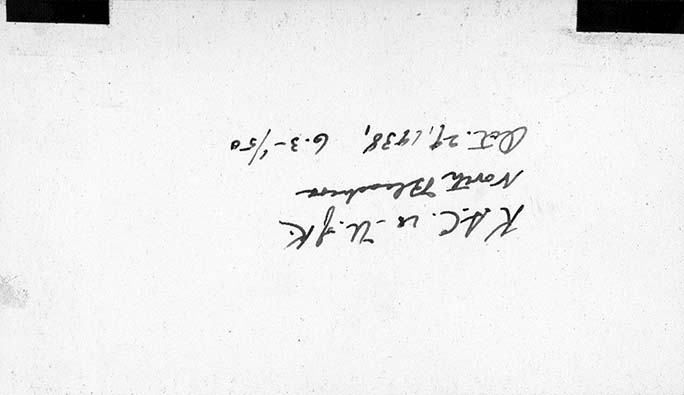 K.S.C. vs - U. of K.
North Bleachers
Oct. 29, 1938, 6.3 - 1/50